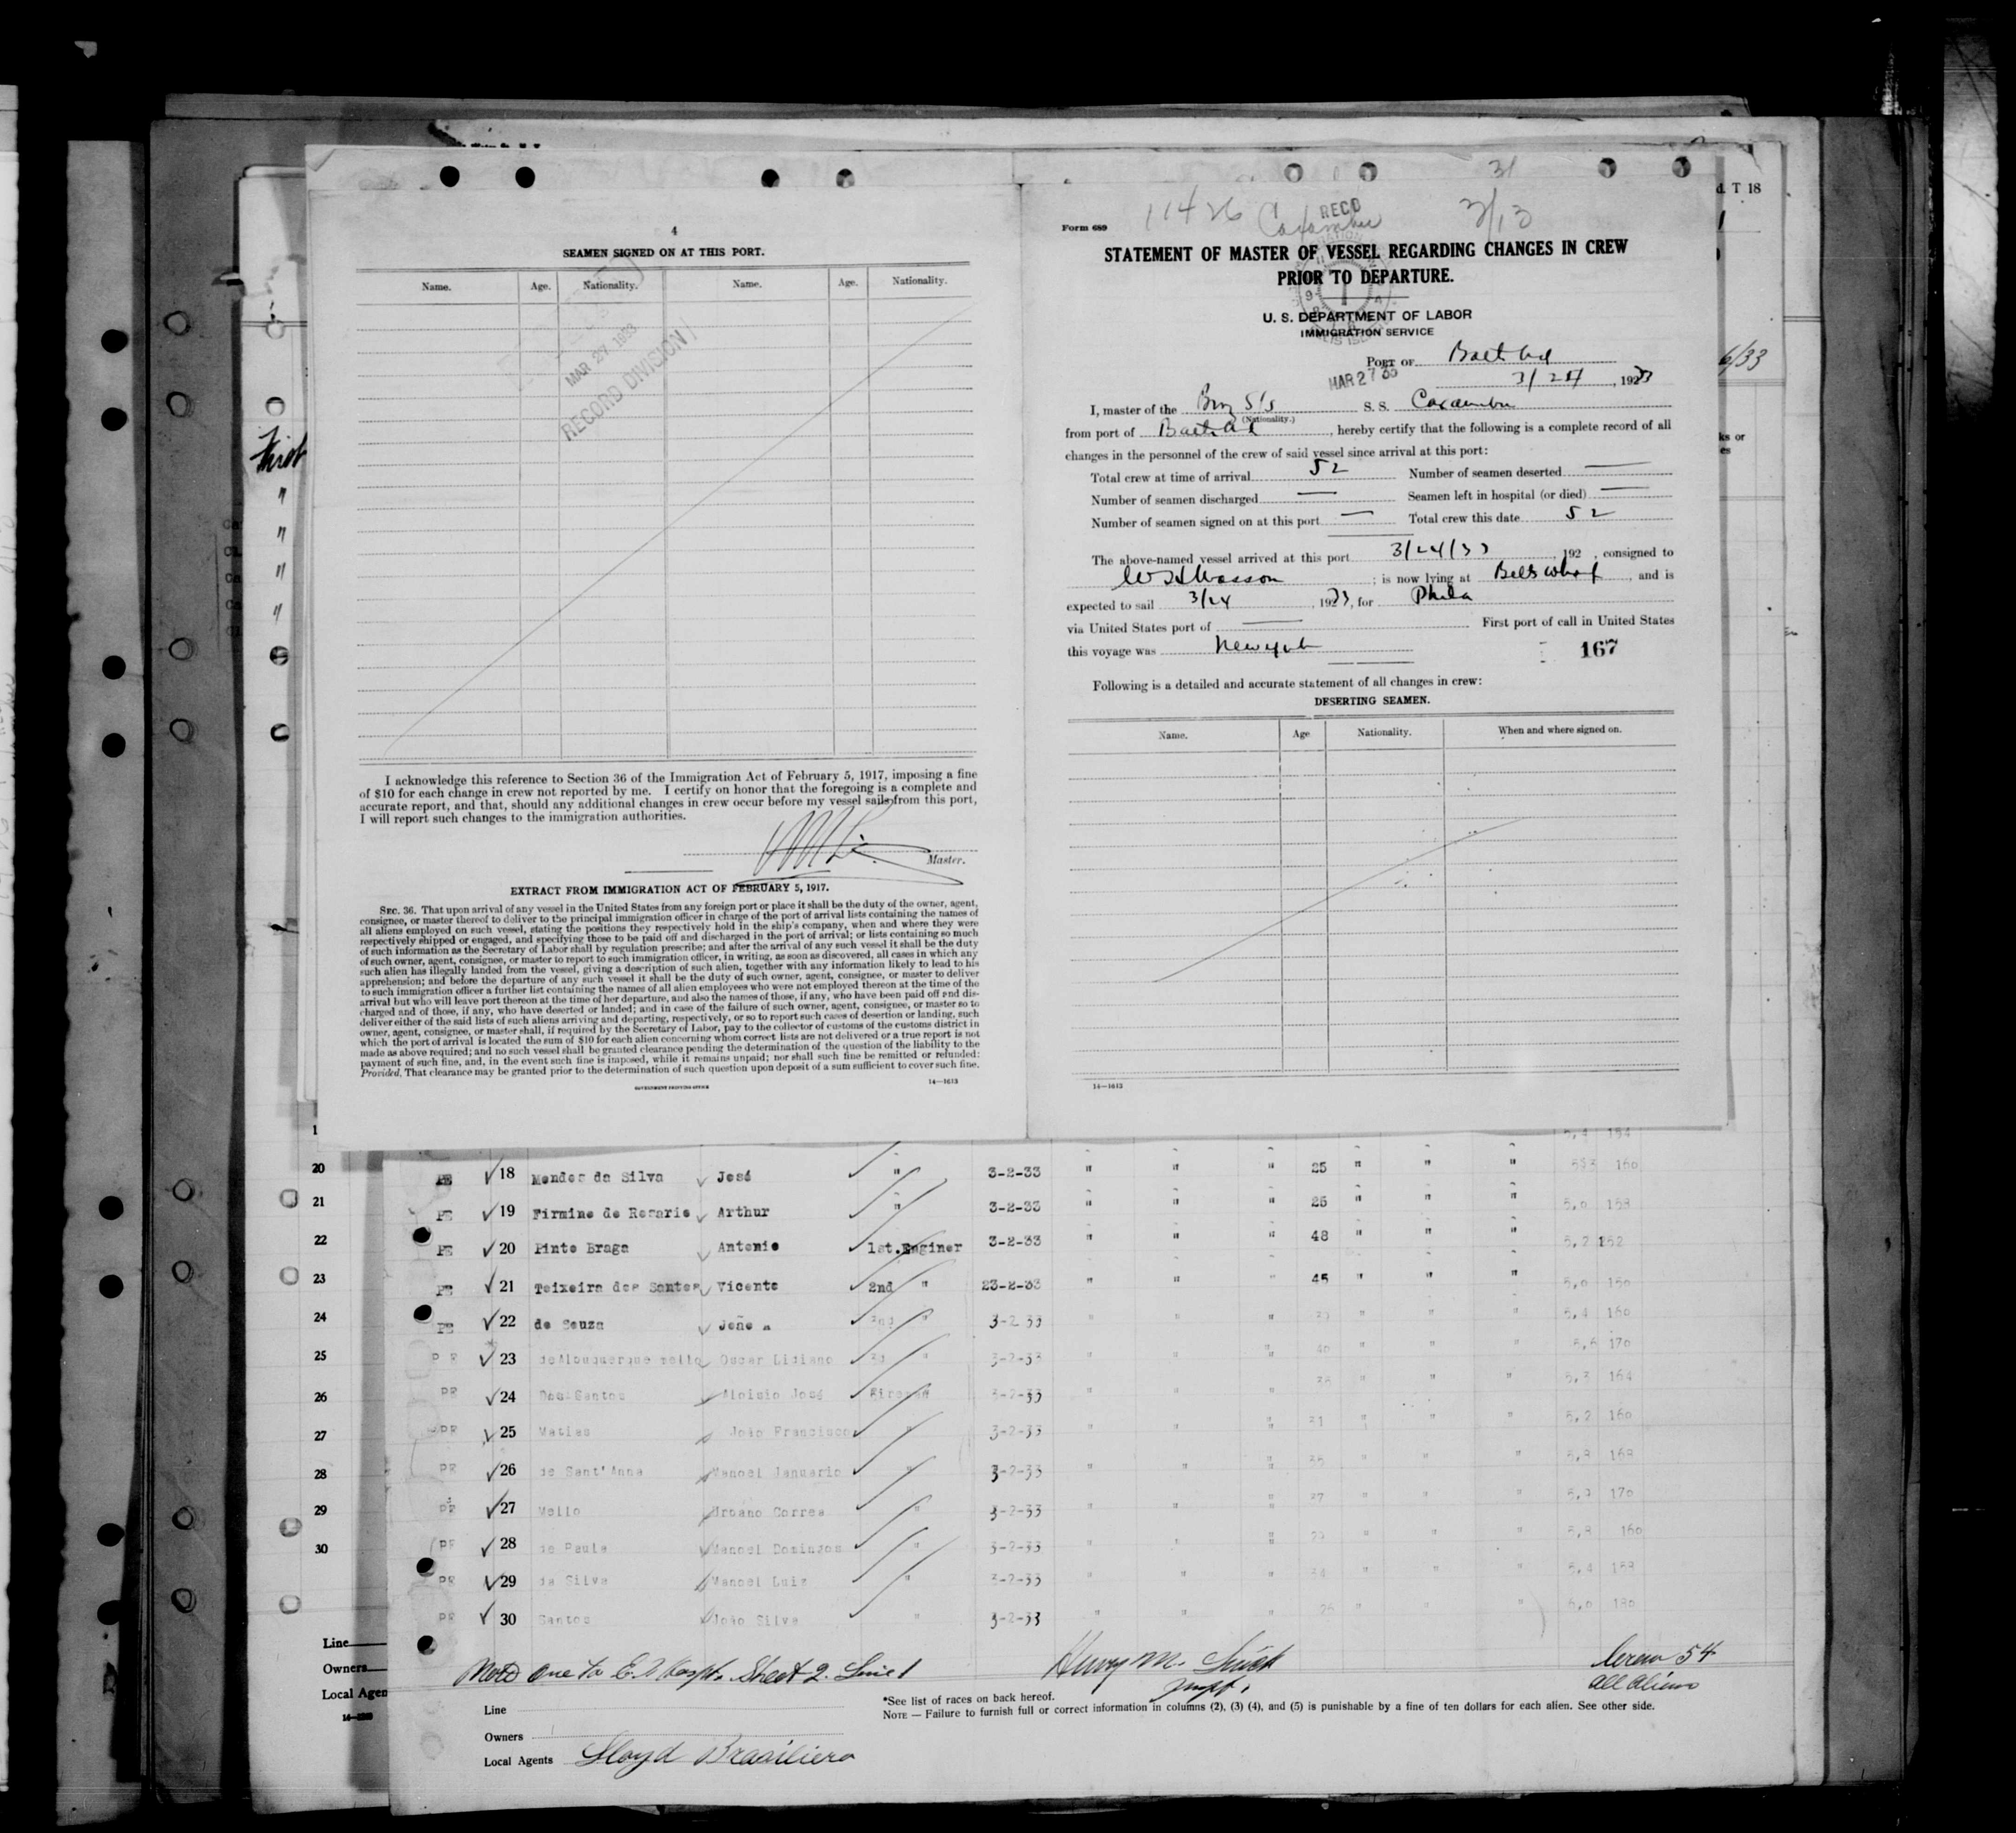 4
SEAMEN SIGNED ON AT THIS PORT.
Name. Age. Nationality. Name. Age. Nationality.
MAR 27 1933
RECORD DIVISION
I acknowledge this reference to Section 36 of the Immigration Act of February 5, 1917, imposing a fine
of $10 for each change in crew not reported by me. I certify on honor that the foregoing is a complete and
accurate report, and that, should any additional changes in crew occur before my vessel sails from this port,
I will report such changes to the immigration authorities.
Master.
EXTRACT FROM IMMIGRATION ACT OF FEBRUARY 5, 1917.
SEC. 36. That upon arrival of any vessel in the United States from any foreign port or place it shall be the duty of the owner, agent,
consignee, or master thereof to deliver to the principal immigration officer in charge of the port of arrival lists containing the names of
all aliens employed on such vessel, stating the positions they respectively hold in the ship's company, when and where they were
respectively shipped or engaged, and specifying those to be paid off and discharged in the port of arrival; or lists containing so much
of such information as the Secretary of Labor shall by regulation prescribe; and after the arrival of any such vessel it shall be the duty
of such owner, agent, consignee, or master to report to such immigration officer, in writing, as soon as discovered, all cases in which any
such alien has illegally landed from the vessel, giving a description of such alien, together with any information likely to lead to his
apprehension; and before the departure of any such vessel it shall be the duty of such owner, agent, consignee, or master to deliver
to such immigration officer a further list containing the names of all alien employees who were not employed thereon at the time of the
arrival but who will leave port thereon at the time of her departure, and also the names of those, if any, who have been paid off and dis-
charged and of those, if any, who have deserted or landed; and in case of the failure of such owner, agent, consignee, or master so to
deliver either of the said lists of such aliens arriving and departing, respectively, or so to report such cases of desertion or landing, such
owner, agent, consignee, or master shall, if required by the Secretary of Labor, pay to the collector of customs of the customs district in
which the port of arrival is located the sum of $10 for each alien concerning whom correct lists are not delivered or a true report is not
made as above required; and no such vessel shall be granted clearance pending the determination of the question of the liability to the
payment of such fine, and, in the event such fine is imposed, while it remains unpaid; nor shall such fine be remitted or refunded:
Provided, That clearance may be granted prior to the determination of such question upon deposit of a sum sufficient to cover such fine.
GOVERNMENT PRINTING OFFICE
14—1613
31
11426 Caxambu 3/13
RECD
Form 689
STATEMENT OF MASTER OF VESSEL REGARDING CHANGES IN CREW
PRIOR TO DEPARTURE.
U. S. DEPARTMENT OF LABOR
IMMIGRATION SERVICE
PORT OF
MAR 27 33
3/24, 1933
I, master of the Braz S/S S. S. Caxambu
(Nationality.)
from port of , hereby certify that the following is a complete record of all
changes in the personnel of the crew of said vessel since arrival at this port:
Total crew at time of arrival 52 Number of seamen deserted —
Number of seamen discharged — Seamen left in hospital (or died) —
Number of seamen signed on at this port — Total crew this date 52
The above-named vessel arrived at this port 3/24/33, 192 , consigned to
; is now lying at , and is
expected to sail 3/24, 1933, for Phila
via United States port of — First port of call in United States
this voyage was New York
167
Following is a detailed and accurate statement of all changes in crew:
DESERTING SEAMEN.
Name. Age Nationality. When and where signed on.
14—1613
d. T 18
6/33
ks or
es
First
"
"
"
"
PE 18 Mendes da Silva José " 3-2-33 " " " 25 " " " 160
PE 19 Firmino do Rosario Arthur " 3-2-33 " " " 25 " " " 5,0 158
PE 20 Pinto Braga Antonio 1st.Enginer 3-2-33 " " " 48 " " " 5,2 152
PE 21 Teixeira dos Santos Vicente 2nd " 23-2-33 " " " 45 " " " 5,0 150
PE 22 de Souza 3-2 33 " " " " " " 5,4 160
PE 23 deAlbuquerque mello Oscar Lidiano 3d " 3-2-33 " " " 40 " " " 5,6 170
PE 24 Dos Santos Aloisio José Fireman 3-2-33 " " " " " 5,3 164
PE 25 Matias João Francisco " 3-2-33 " " " 31 " " " 5,2 160
PE 26 de Sant'Anna Manoel Januario " 3-2-33 " " " " " " 5,8 168
PE 27 Mello Urbano Correa " 3-2-33 " " " 27 " " " 170
PE 28 de Paula Manoel Domingos " 3-2-33 " " " " " " 5,8 160
PE 29 da Silva Manoel Luiz " 3-2-33 " " " 34 " " " 5,4 158
PE 30 Santos João Silva " 3-2-33 " " " 26 " " " 6,0 180
1
20
21
22
23
24
25
26
27
28
29
30
Line
Owners
Local Agen
Note One to E.I. Hospt. Sheet 2. Line 1
Crew 54
All aliens
*See list of races on back hereof.
NOTE — Failure to furnish full or correct information in columns (2), (3) (4), and (5) is punishable by a fine of ten dollars for each alien. See other side.
Line
Owners
Local Agents Lloyd Brasiliero